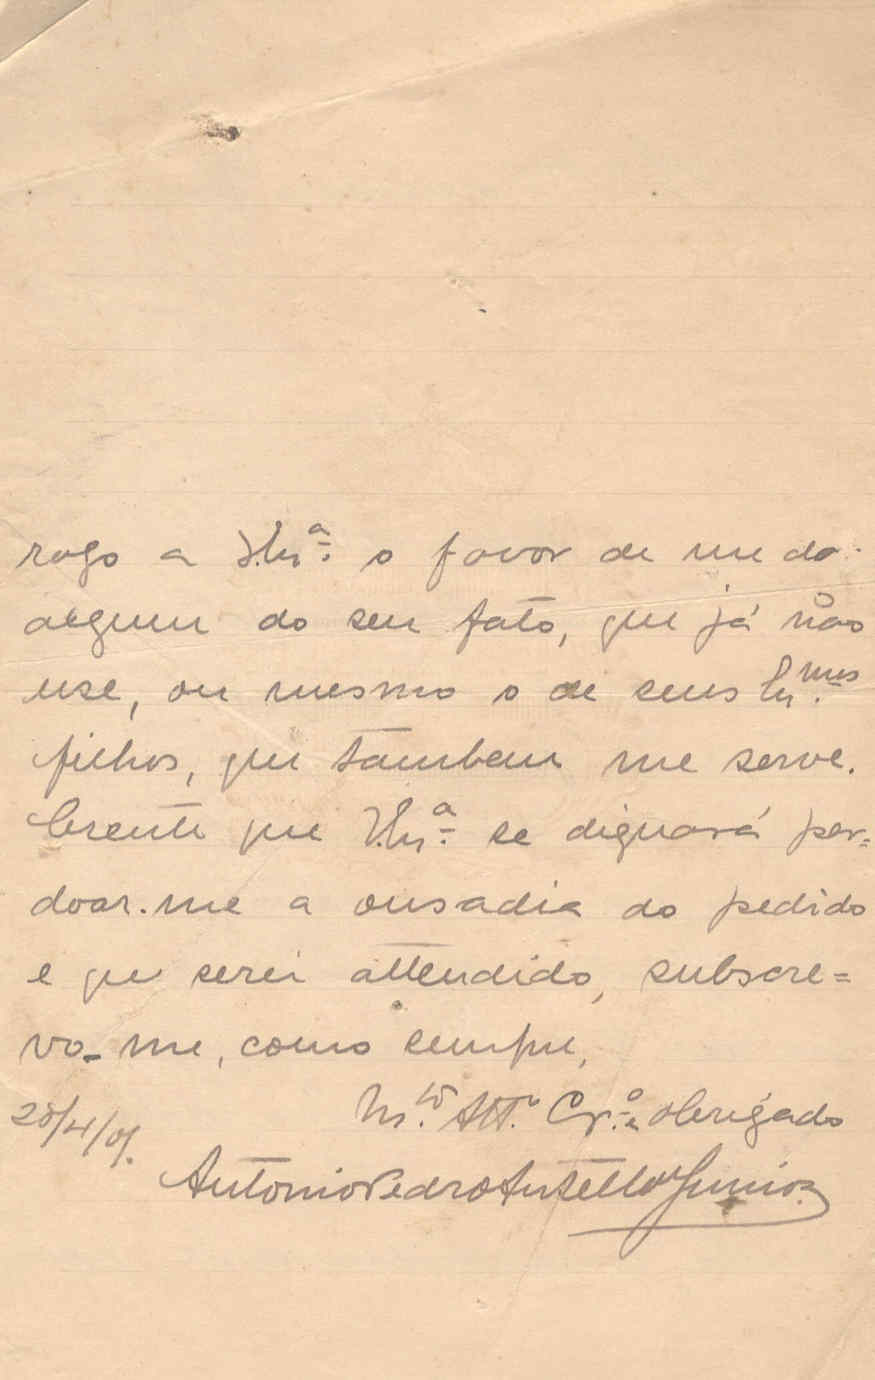 rogo a V. Ex.ª o favor de me da
algum do seu fato, que já não
use, ou mesmo o de seus Ex.mos
filhos, que tambem me serve.
Crente que V. Ex.ª se dignará per=
doar-me a ousadia do pedido
e que serei attendido, subscre=
vo-me, como sempre,
M.to Att.º Cr.º e obrigado
28/4/
Antonio Pedro Junior